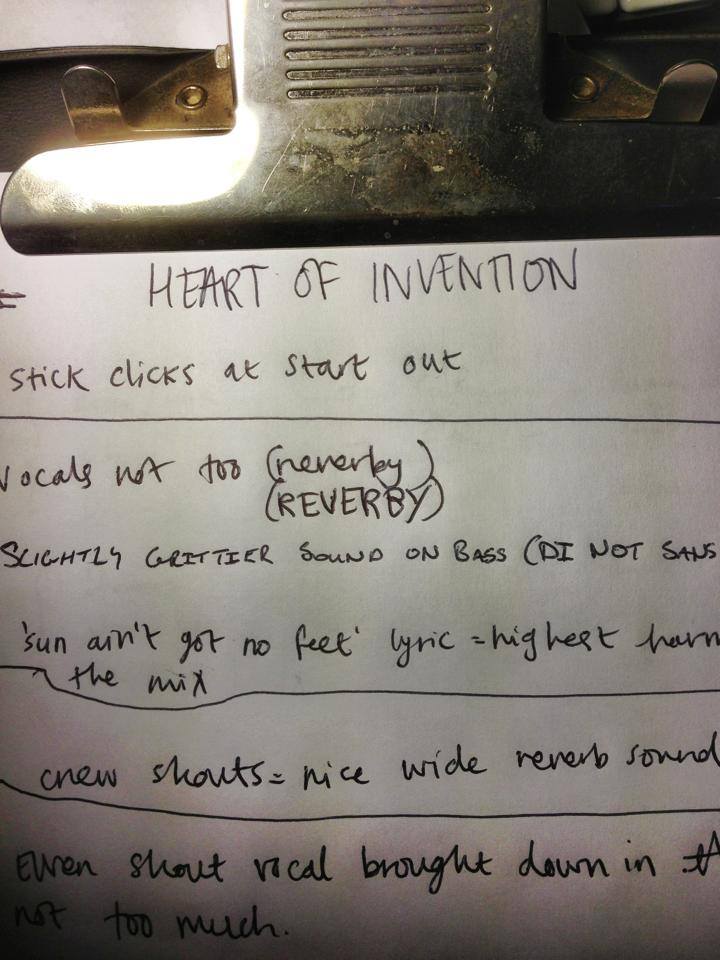 HEART OF INVENTION
stick clicks at start out
vocals not too (reverby)
(REVERBY)
SLIGHTLY GRITTIER SOUND ON BASS (DI NOT SANS
'sun ain't got no feet' lyric = highest harm
the mix
crew shouts = nice wide reverb sound
Ewen shout vocal brought down in th
not too much.